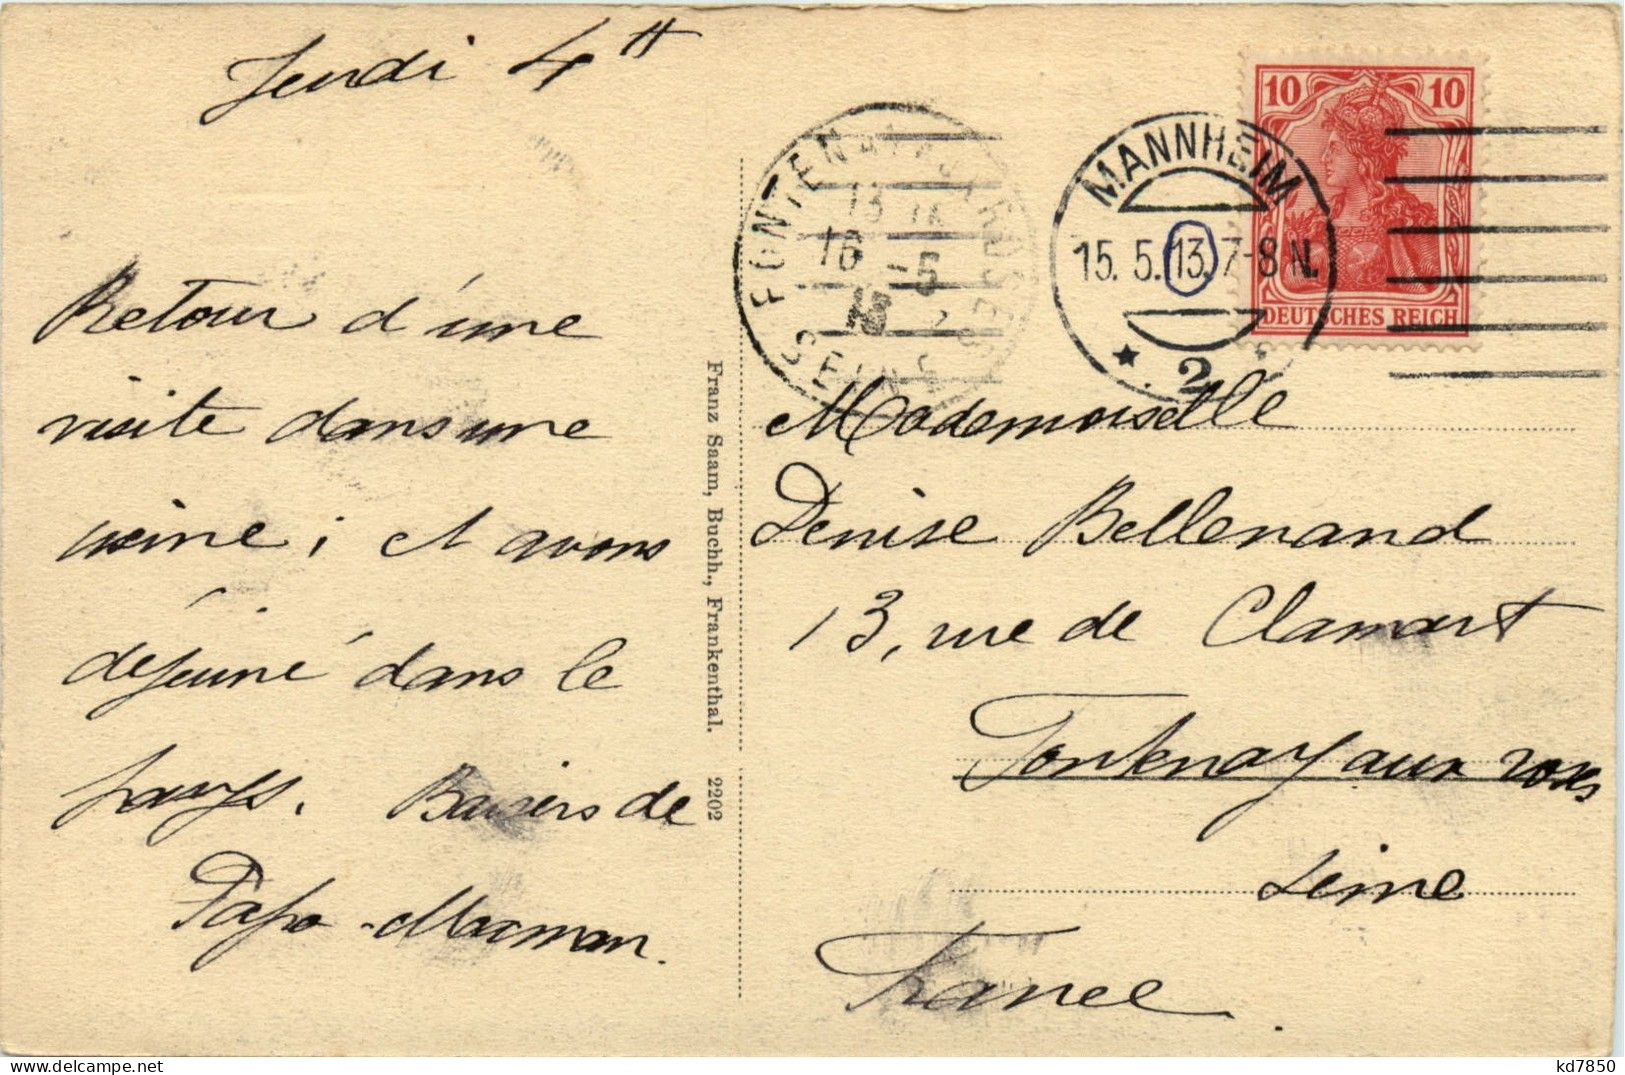 Jeudi 4 H
Retour d'une
visite dans une
usine; et avons
déjeuné dans le
pays. Baisers de
Papa-Maman.
Franz Saam, Buchh., Frankenthal. 2202
FONTENAY AUX ROSES
SEINE
13
16 -5
13
MANNHEIM
15. 5. 13. 7-8 N.
* 2
10 10
DEUTSCHES REICH
Mademoiselle
Denise Bellenand
13, rue de Clamart
Fontenay aux roses
Seine
France.
kd7850